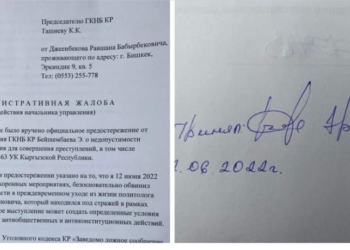 Председателю ГКНБ КР
Ташиеву К.К.
от Джеенбекова Равшана Бабырбековича,
проживающего по адресу: г. Бишкек,
9, кв. 5
Тел: (0553) 255-778
ИСТРАТИВНАЯ ЖАЛОБА
действия начальника управления)
е было вручено официальное предостережение от
ия ГКНБ КР Бейшембаева Э. о недопустимости
вия для совершения преступлений, в том числе
63 УК Кыргызской Республики.
предостережении указано на то, что я 12 июня 2022
хоронных мероприятиях, безосновательно обвинил
сти в преждевременном уходе из жизни политолога
овича, который находился под стражей в рамках
выступление может создать определенные условия
антиобщественных и антиконституционных действий.
Уголовного кодекса КР «Заведомо ложное сообщение
Принял
.06.2022г.